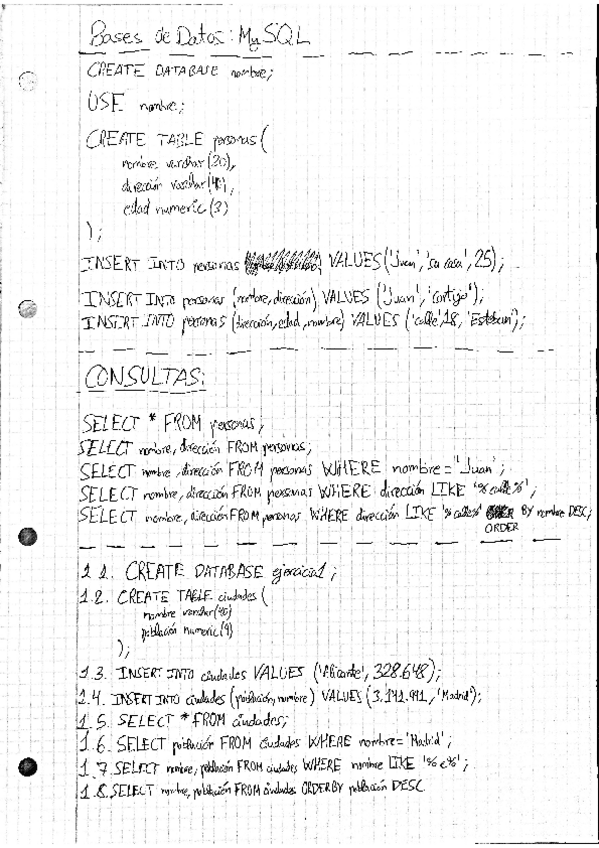 Bases de Datos: MySQL
CREATE DATABASE nombre;
USE nombre;
CREATE TABLE personas (
nombre varchar(20),
dirección varchar(40),
edad numeric(3)
);
INSERT INTO personas VALUES('Juan','su casa',25);
INSERT INTO personas (nombre, dirección) VALUES ('Juan','cortijo');
INSERT INTO personas (dirección, edad, nombre) VALUES ('calle',18,'Esteban');
CONSULTAS:
SELECT * FROM personas;
SELECT nombre, dirección FROM personas;
SELECT nombre, dirección FROM personas WHERE nombre='Juan';
SELECT nombre, dirección FROM personas WHERE dirección LIKE '%calle%';
SELECT nombre, dirección FROM personas WHERE dirección LIKE '%calle%' BY nombre DESC;
ORDER
1.1. CREATE DATABASE ejercicio1;
1.2. CREATE TABLE ciudades (
nombre varchar(40)
población numeric(9)
);
1.3. INSERT INTO ciudades VALUES ('Alicante', 328.648);
1.4. INSERT INTO ciudades (población, nombre) VALUES (3.141.991, 'Madrid');
1.5. SELECT * FROM ciudades;
1.6. SELECT población FROM ciudades WHERE nombre='Madrid';
1.7. SELECT nombre, población FROM ciudades WHERE nombre LIKE '%e%';
1.8. SELECT nombre, población FROM ciudades ORDER BY población DESC